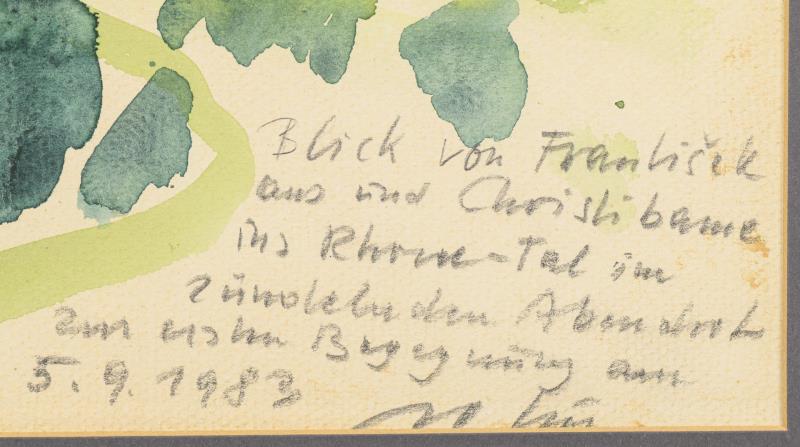 Blick von František
aus und Christibame
ins Rhone-Tal im
zündelnden Abendrot
zur ersten Begegnung am
5.9.1983